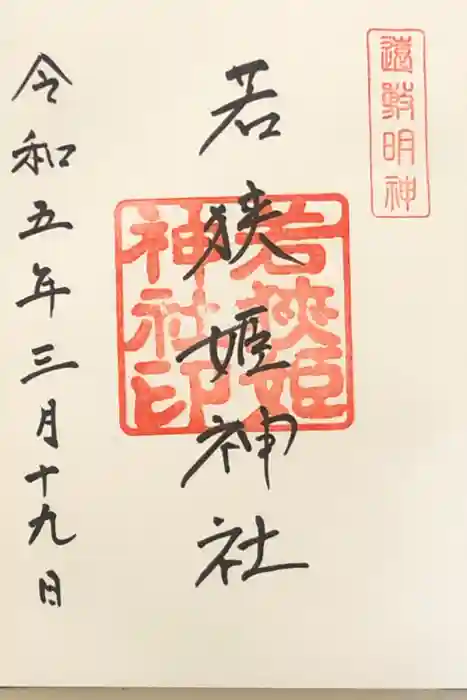 遠敷明神
若狭姫神社
若狭姫
神社印
令和五年三月十九日